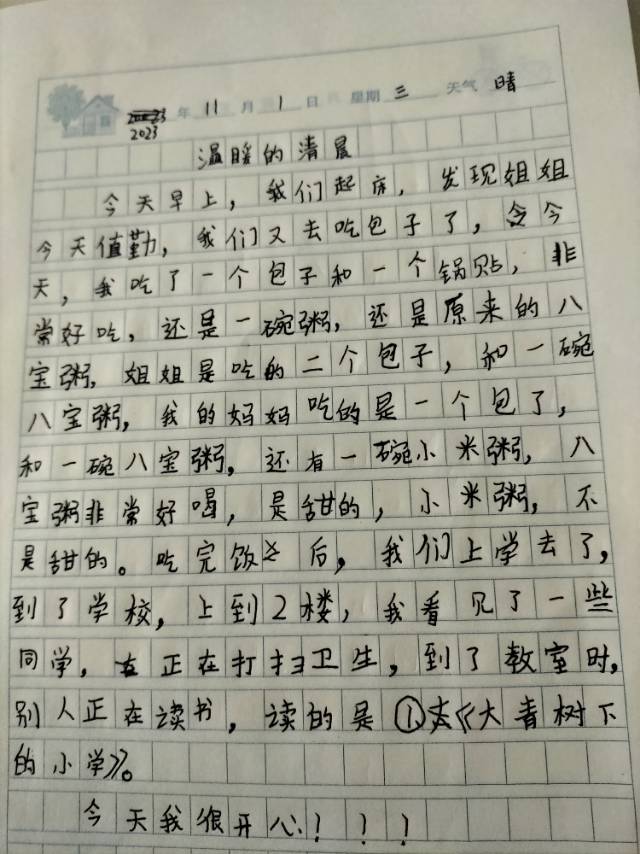 年 11 月 1 日 星期 三 天气 晴
2023
温暖的清晨
今天早上，我们起床，发现姐姐
今天值勤，我们又去吃包子了，今
天，我吃了一个包子和一个锅贴，非
常好吃，还是一碗粥，还是原来的八
宝粥，姐姐是吃的二个包子，和一碗
八宝粥，我的妈妈吃的是一个包了，
和一碗八宝粥，还有一碗小米粥，八
宝粥非常好喝，是甜的，小米粥，不
是甜的。吃完饭之后，我们上学去了，
到了学校，上到2楼，我看见了一些
同学，正在打扫卫生，到了教室时，
别人正在读书，读的是①《大青树下
的小学》。
今天我很开心！！！